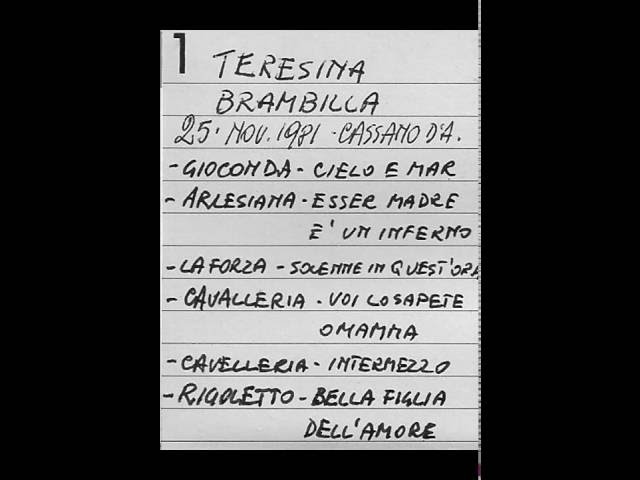 1
TERESINA
BRAMBILLA
25. NOV. 1981 - CASSANO D'A.
- GIOCONDA - CIELO E MAR
- ARLESIANA - ESSER MADRE
E' UN INFERNO
- LA FORZA - SOLENNE IN QUEST'ORA
- CAVALLERIA - VOI LO SAPETE
O MAMMA
- CAVELLERIA - INTERMEZZO
- RIGOLETTO - BELLA FIGLIA
DELL'AMORE